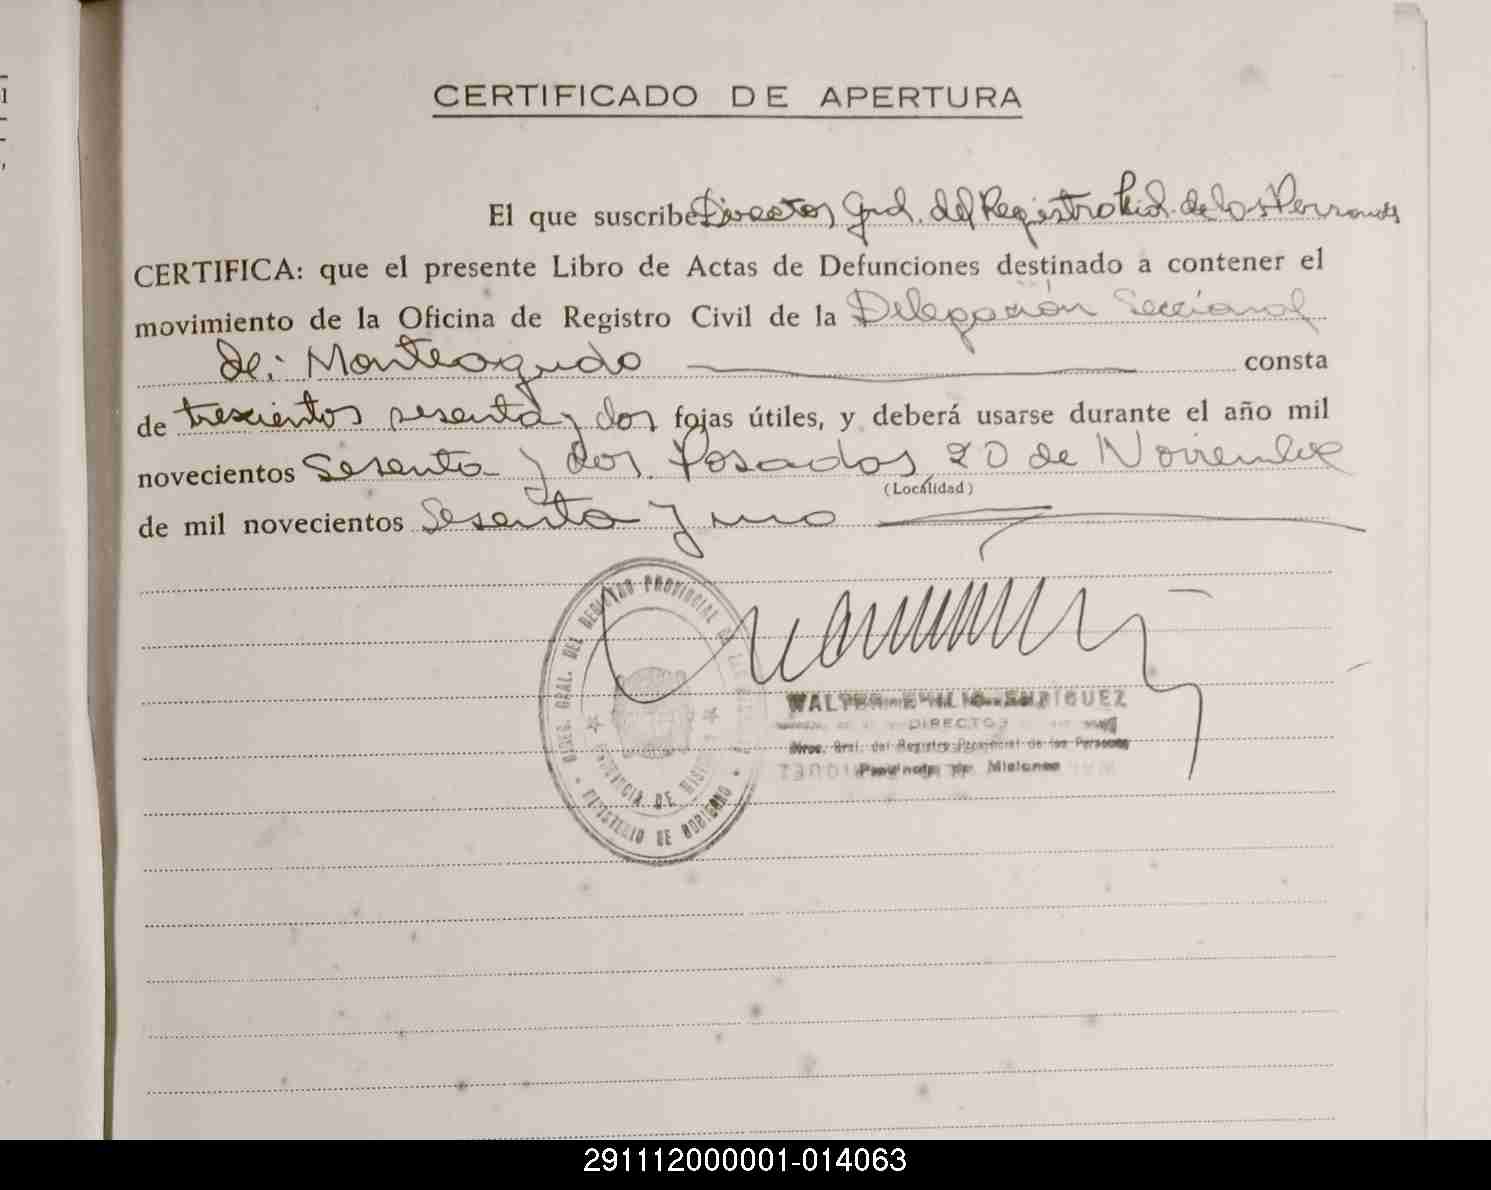 CERTIFICADO DE APERTURA
El que suscribe Director Gral. del Registro Pcial. de las Personas
CERTIFICA: que el presente Libro de Actas de Defunciones destinado a contener el
movimiento de la Oficina de Registro Civil de la Delegación Seccional
de: Monteagudo consta
de trescientos sesenta y dos fojas útiles, y deberá usarse durante el año mil
novecientos Sesenta y dos. Posadas, 20 de Noviembre
(Localidad)
de mil novecientos Sesenta y uno
DIREC. GRAL. DEL REGISTRO PROVINCIAL DE LAS
PROVINCIA DE MISIONES
MINISTERIO DE GOBIERNO
WALTER EMILIO ENRIQUEZ
DIRECTOR
Direc. Gral. del Registro Provincial de las Personas
Provincia de Misiones
291112000001-014063